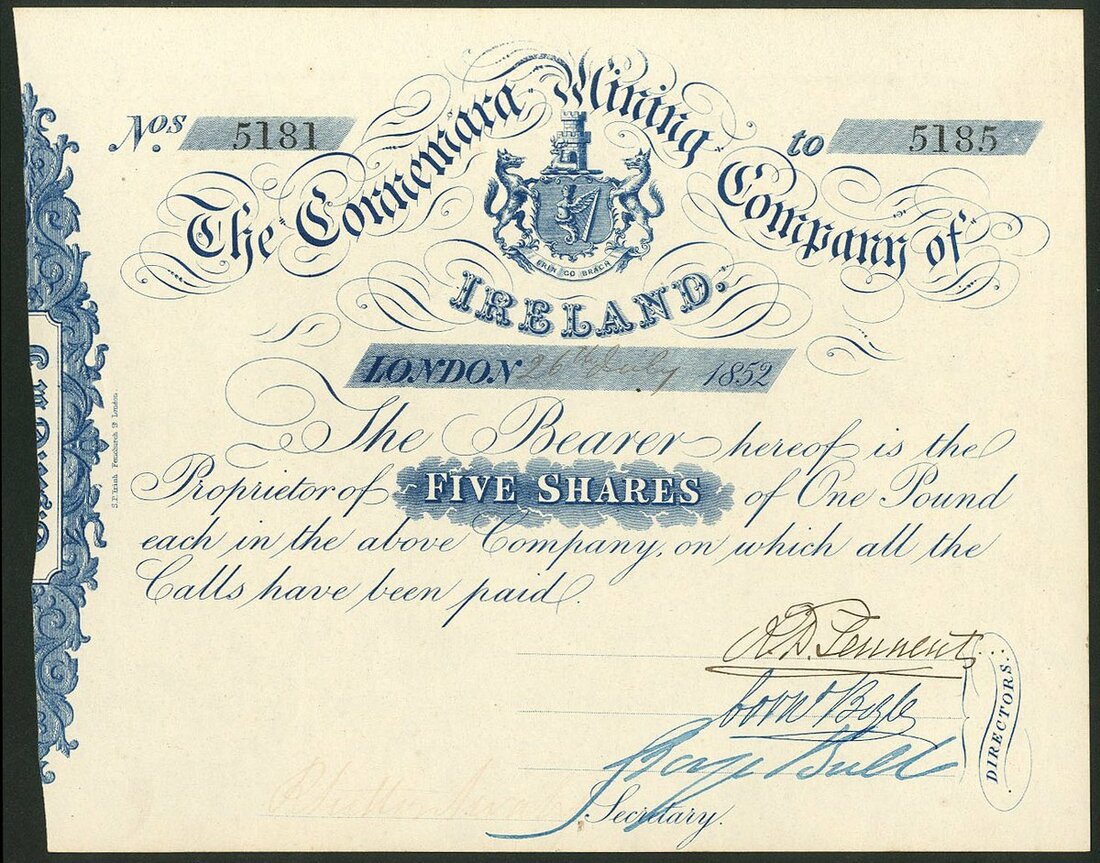 Nos. 5181 to 5185
The Connemara Mining Company of
ERIN GO BRACH
IRELAND.
LONDON 26th July 1852
The Bearer hereof is the
Proprietor of FIVE SHARES of One Pound
each in the above Company, on which all the
Calls have been paid.
Tennent
DIRECTORS.
Secretary.
S.P. Irish Fenchurch St. London.